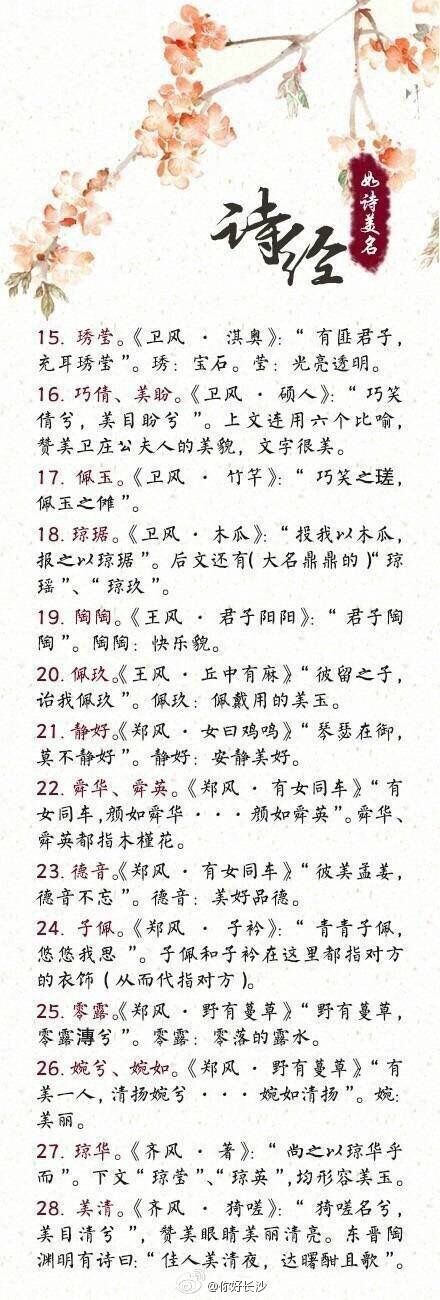 诗经
如诗美名
15. 琇莹。《卫风 · 淇奥》：“ 有匪君子，
充耳琇莹 ”。琇：宝石。莹：光亮透明。
16. 巧倩、美盼。《卫风 · 硕人》：“ 巧笑
倩兮，美目盼兮 ”。上文连用六个比喻，
赞美卫庄公夫人的美貌，文字很美。
17. 佩玉。《卫风 · 竹竿》：“ 巧笑之瑳，
佩玉之傩 ”。
18. 琼琚。《卫风 · 木瓜》：“ 投我以木瓜，
报之以琼琚 ”。后文还有( 大名鼎鼎的 )“ 琼
瑶 ”、“ 琼玖 ”。
19. 陶陶。《王风 · 君子阳阳》：“ 君子陶
陶 ”。陶陶：快乐貌。
20. 佩玖。《王风 · 丘中有麻》“ 彼留之子，
诒我佩玖 ”。佩玖：佩戴用的美玉。
21. 静好。《郑风 · 女曰鸡鸣》：“ 琴瑟在御，
莫不静好 ”。静好：安静美好。
22. 舜华、舜英。《郑风 · 有女同车》“ 有
女同车，颜如舜华 · · · 颜如舜英 ”。舜华、
舜英都指木槿花。
23. 德音。《郑风 · 有女同车》“ 彼美孟姜，
德音不忘 ”。德音：美好品德。
24. 子佩。《郑风 · 子衿》：“ 青青子佩，
悠悠我思 ”。子佩和子衿在这里都指对方
的衣饰（ 从而代指对方）。
25. 零露。《郑风 · 野有蔓草》“ 野有蔓草，
零露漙兮 ”。零露：零落的露水。
26. 婉兮、婉如。《郑风 · 野有蔓草》“ 有
美一人，清扬婉兮 · · · 婉如清扬 ”。婉：
美丽。
27. 琼华。《齐风 · 著》：“ 尚之以琼华乎
而 ”。下文“ 琼莹 ”、“ 琼英 ”，均形容美玉。
28. 美清。《齐风 · 猗嗟》：“ 猗嗟名兮，
美目清兮 ”，赞美眼睛美丽清亮。东晋陶
渊明有诗曰：“ 佳人美清夜，达曙酣且歌 ”。
@你好长沙